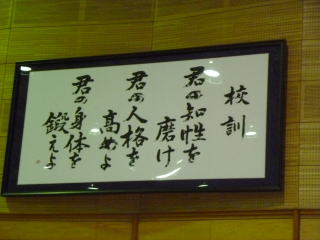 校訓
君の知性を
磨け
君の人格を
高めよ
君の身体を
鍛えよ